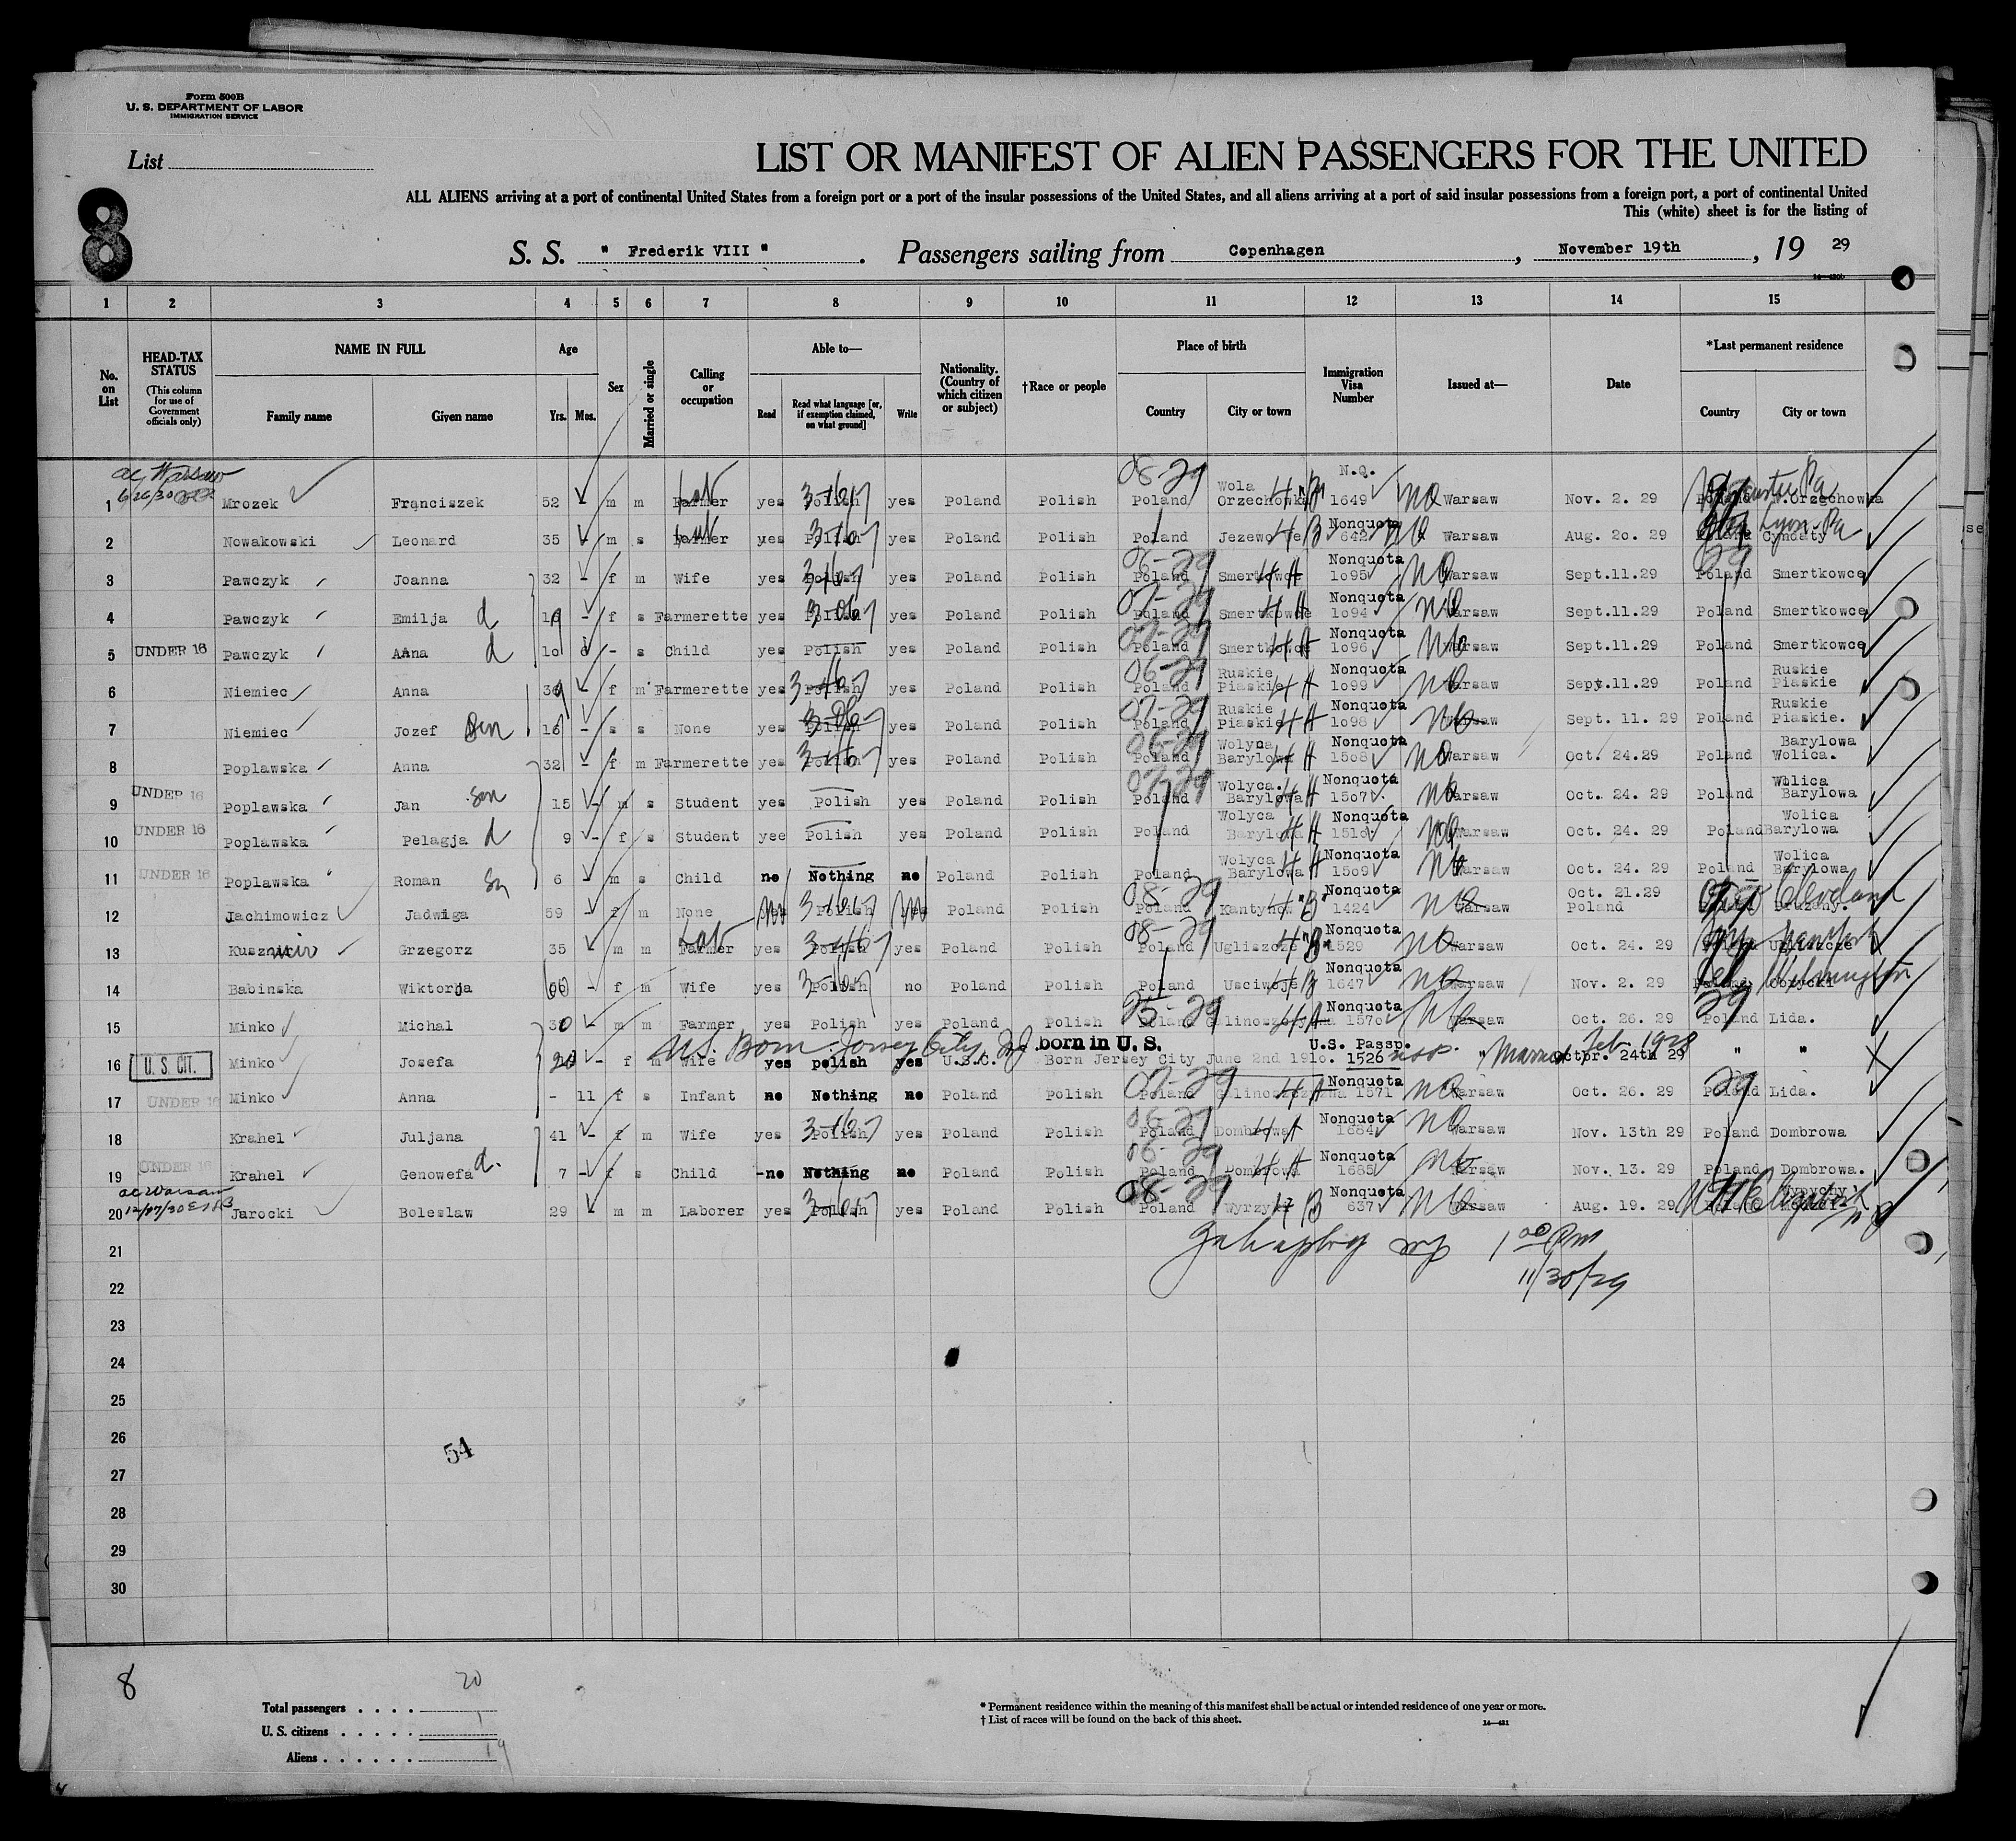 Form 500B
U. S. DEPARTMENT OF LABOR
IMMIGRATION SERVICE
List
8
LIST OR MANIFEST OF ALIEN PASSENGERS FOR THE UNITED
ALL ALIENS arriving at a port of continental United States from a foreign port or a port of the insular possessions of the United States, and all aliens arriving at a port of said insular possessions from a foreign port, a port of continental United
This (white) sheet is for the listing of
S. S. " Frederik VIII " . Passengers sailing from Copenhagen , November 19th , 19 29
1 2 3 4 5 6 7 8 9 10 11 12 13 14 15
No. on List
HEAD-TAX STATUS (This column for use of Government officials only)
NAME IN FULL Family name Given name
Age Yrs. Mos.
Sex
Married or single
Calling or occupation
Able to— Read Read what language [or, if exemption claimed, on what ground] Write
Nationality. (Country of which citizen or subject)
†Race or people
Place of birth Country City or town
Immigration Visa Number
Issued at—
Date
*Last permanent residence Country City or town
1 Mrozek Franciszek 52 m m Farmer yes Polish yes Poland Polish Poland Wola Orzechowka N.Q. 1649 Warsaw Nov. 2. 29
2 Nowakowski Leonard 35 m s Farmer yes Polish yes Poland Polish Poland Jezewo Nonquota 642 Warsaw Aug. 20. 29
3 Pawczyk Joanna 32 - f m Wife yes Polish yes Poland Polish Poland Smertkowce Nonquota 1095 Warsaw Sept.11.29 Poland Smertkowce
4 Pawczyk Emilja d - f s Farmerette yes Polish yes Poland Polish Poland Smertkowce Nonquota 1094 Warsaw Sept.11.29 Poland Smertkowce
5 UNDER 16 Pawczyk Anna d 10 - s Child yes Polish yes Poland Polish Poland Smertkowce Nonquota 1096 Warsaw Sept.11.29 Poland Smertkowce
6 Niemiec Anna - f m Farmerette yes Polish yes Poland Polish Poland Ruskie Piaskie Nonquota 1099 Warsaw Sept.11.29 Poland Ruskie Piaskie
7 Niemiec Jozef Son 16 - s s None yes Polish yes Poland Polish Poland Ruskie Piaskie Nonquota 1098 Warsaw Sept. 11. 29 Poland Ruskie Piaskie.
8 Poplawska Anna 32 - f m Farmerette yes Polish yes Poland Polish Poland Wolyna Barylowa Nonquota 1508 Warsaw Oct. 24.29 Poland Barylowa Wolica.
9 UNDER 16 Poplawska Jan son 15 - m s Student yes Polish yes Poland Polish Poland Wolyca. Barylowa Nonquota 1507 Warsaw Oct. 24. 29 Poland Wolica Barylowa
10 UNDER 16 Poplawska Pelagja d 9 - f s Student yee Polish yes Poland Polish Poland Wolyca Barylowa Nonquota 1510 Warsaw Oct. 24. 29 Poland Wolica Barylowa
11 UNDER 16 Poplawska Roman Sn 6 - m s Child no Nothing no Poland Polish Poland Wolyca Barylowa Nonquota 1509 Warsaw Oct. 24. 29 Poland Wolica Barylowa
12 Jachimowicz Jadwiga 59 - f m None Polish Poland Polish Poland Kantynow Nonquota 1424 Warsaw Oct. 21.29 Poland Cleveland
13 Grzegorz 35 m m Farmer yes Polish yes Poland Polish Poland Ugliszcze Nonquota 1529 Warsaw Oct. 24. 29 Ugliszcze
14 Babinska Wiktorja 60 - f m Wife yes Polish no Poland Polish Poland Usciwoje Nonquota 1647 Warsaw Nov. 2. 29 Wilmington
15 Minko Michal 30 - m m Farmer yes Polish yes Poland Polish Poland Nonquota 1570 Warsaw Oct. 26. 29 Poland Lida.
U.S. Born Jersey City, NJ born in U. S. Married Feb. 1928
16 U. S. CIT. Minko Josefa - f m Wife yes polish yes U.S.C. Born Jersey City June 2nd 1910. U.S. Passp. 1526 " Octbr. 24th 29 " "
17 UNDER 16 Minko Anna - 11 f s Infant no Nothing no Poland Polish Poland Nonquota 1571 Warsaw Oct. 26. 29 Poland Lida.
18 Krahel Juljana 41 - f m Wife yes Polish yes Poland Polish Poland Dombrowa Nonquota 1684 Warsaw Nov. 13th 29 Poland Dombrowa
19 UNDER 16 Krahel Genowefa d. 7 - f s Child -no Nothing no Poland Polish Poland Dombrowa Nonquota 1685 Warsaw Nov. 13. 29 Poland Dombrowa.
20 Jarocki Boleslaw 29 - m m Laborer yes Polish yes Poland Polish Poland Wyrzyki Nonquota 637 Warsaw Aug. 19. 29
21 1 00 Pm
22 11/30/29
23
24
25
26
54
27
28
29
30
8
Total passengers . . . . 20
U. S. citizens . . . . . 1
Aliens . . . . . . 19
* Permanent residence within the meaning of this manifest shall be actual or intended residence of one year or more.
† List of races will be found on the back of this sheet.